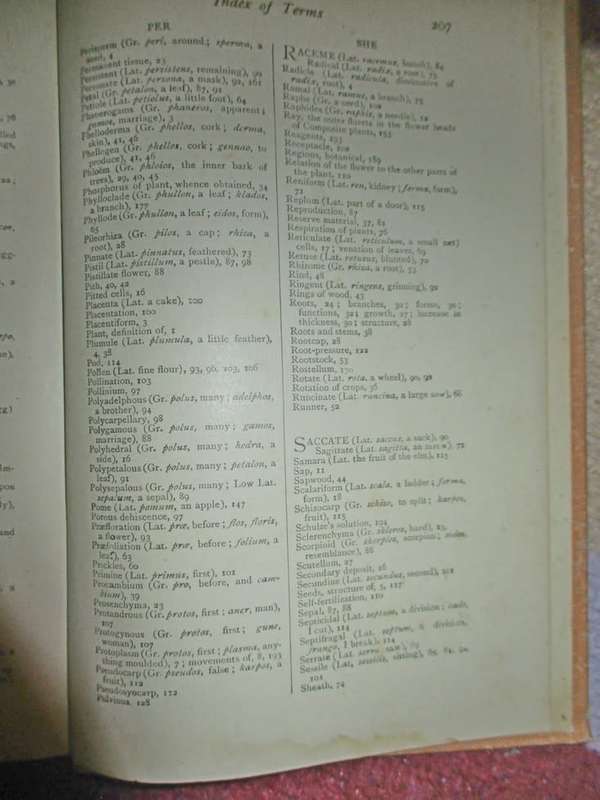 Index of Terms
207
PER
Perisperm (Gr. peri, around; sperma, a
seed, 4
Permanent tissue, 23
Persistent (Lat. persistens, remaining), 90
Personate (Lat. persona, a mask), 92, 161
Petal (Gr. petalon, a leaf), 87, 91
Petiole (Lat. petiolus, a little foot), 64
Phanerogams (Gr. phaneros, apparent;
gamos, marriage), 3
Phelloderma (Gr. phellos, cork; derma,
skin), 41, 46
Phellogen (Gr. phellos, cork; gennao, to
produce), 41, 46
Phloëm (Gr. phloios, the inner bark of
trees), 29, 40, 45
Phosphorus of plant, whence obtained, 34
Phylloclade (Gr. phullon, a leaf; klados,
a branch), 177
Phyllode (Gr. phullon, a leaf; eidos, form),
65
Pileorhiza (Gr. pilos, a cap; rhiza, a
root), 28
Pinnate (Lat. pinnatus, feathered), 73
Pistil (Lat. pistillum, a pestle), 87, 98
Pistillate flower, 88
Pith, 40, 42
Pitted cells, 16
Placenta (Lat. a cake), 100
Placentation, 100
Placentiform, 3
Plant, definition of, 1
Plumule (Lat. plumula, a little feather),
4, 38
Pod, 114
Pollen (Lat. fine flour), 93, 96, 103, 106
Pollination, 103
Pollinium, 97
Polyadelphous (Gr. polus, many; adelphos,
a brother), 94
Polycarpellary, 98
Polygamous (Gr. polus, many; gamos,
marriage), 88
Polyhedral (Gr. polus, many; hedra, a
side), 16
Polypetalous (Gr. polus, many; petalon, a
leaf), 91
Polysepalous (Gr. polus, many; Low Lat.
sepalum, a sepal), 89
Pome (Lat. pomum, an apple), 147
Porous dehiscence, 97
Præfloration (Lat. præ, before; flos, floris,
a flower), 93
Præfoliation (Lat. præ, before; folium, a
leaf), 63
Prickles, 60
Primine (Lat. primus, first), 101
Procambium (Gr. pro, before, and cam-
bium), 39
Prosenchyma, 23
Protandrous (Gr. protos, first; aner, man),
107
Protogynous (Gr. protos, first; gune,
woman), 107
Protoplasm (Gr. protos, first; plasma, any-
thing moulded), 7; movements of, 8, 193
Pseudocarp (Gr. pseudos, false; karpos, a
fruit), 112
Pseudosyncarp, 172
Pulvinus, 128
SHE
RACEME (Lat. racemus, bunch), 84
Radical (Lat. radix, a root), 75
Radicle (Lat. radicula, diminutive of
radix, root), 4
Ramal (Lat. ramus, a branch), 75
Raphe (Gr. a seed), 102
Raphides (Gr. raphis, a needle), 12
Ray, the outer florets in the flower heads
of Composite plants, 155
Reagents, 193
Receptacle, 102
Regions, botanical, 189
Relation of the flower to the other parts of
the plant, 120
Reniform (Lat. ren, kidney; forma, form),
71
Replum (Lat. part of a door), 115
Reproduction, 87
Reserve material, 37, 81
Respiration of plants, 76
Reticulate (Lat. reticulum, a small net)
cells, 17; venation of leaves, 69
Retuse (Lat. retusus, blunted), 70
Rhizome (Gr. rhiza, a root), 53
Rind, 48
Ringent (Lat. ringens, grinning), 92
Rings of wood, 43
Roots, 24; branches, 30; forms, 30;
functions, 32; growth, 27; increase in
thickness, 30; structure, 28
Roots and stems, 38
Rootcap, 28
Root-pressure, 122
Rootstock, 53
Rostellum, 170
Rotate (Lat. rota, a wheel), 90, 92
Rotation of crops, 36
Runcinate (Lat. runcina, a large saw), 66
Runner, 52
SACCATE (Lat. saccus, a sack), 90
Sagittate (Lat. sagitta, an arrow), 72
Samara (Lat. the fruit of the elm), 115
Sap, 11
Sapwood, 44
Scalariform (Lat. scala, a ladder; forma,
form), 18
Schizocarp (Gr. schizo, to split; karpos,
fruit), 115
Schulze's solution, 194
Sclerenchyma (Gr. skleros, hard), 23
Scorpioid (Gr. skorpios, scorpion; eidos,
resemblance), 86
Scutellum, 27
Secondary deposit, 16
Secundine (Lat. secundus, second), 101
Seeds, structure of, 5, 117
Self-fertilization, 110
Sepal, 87, 88
Septicidal (Lat. septum, a division; cædo,
I cut), 114
Septifragal (Lat. septum, a division,
frango, I break), 114
Serrate (Lat. serra, saw), 69
Sessile (Lat. sessilis, sitting), 65, 84, 94
101
Sheath, 74